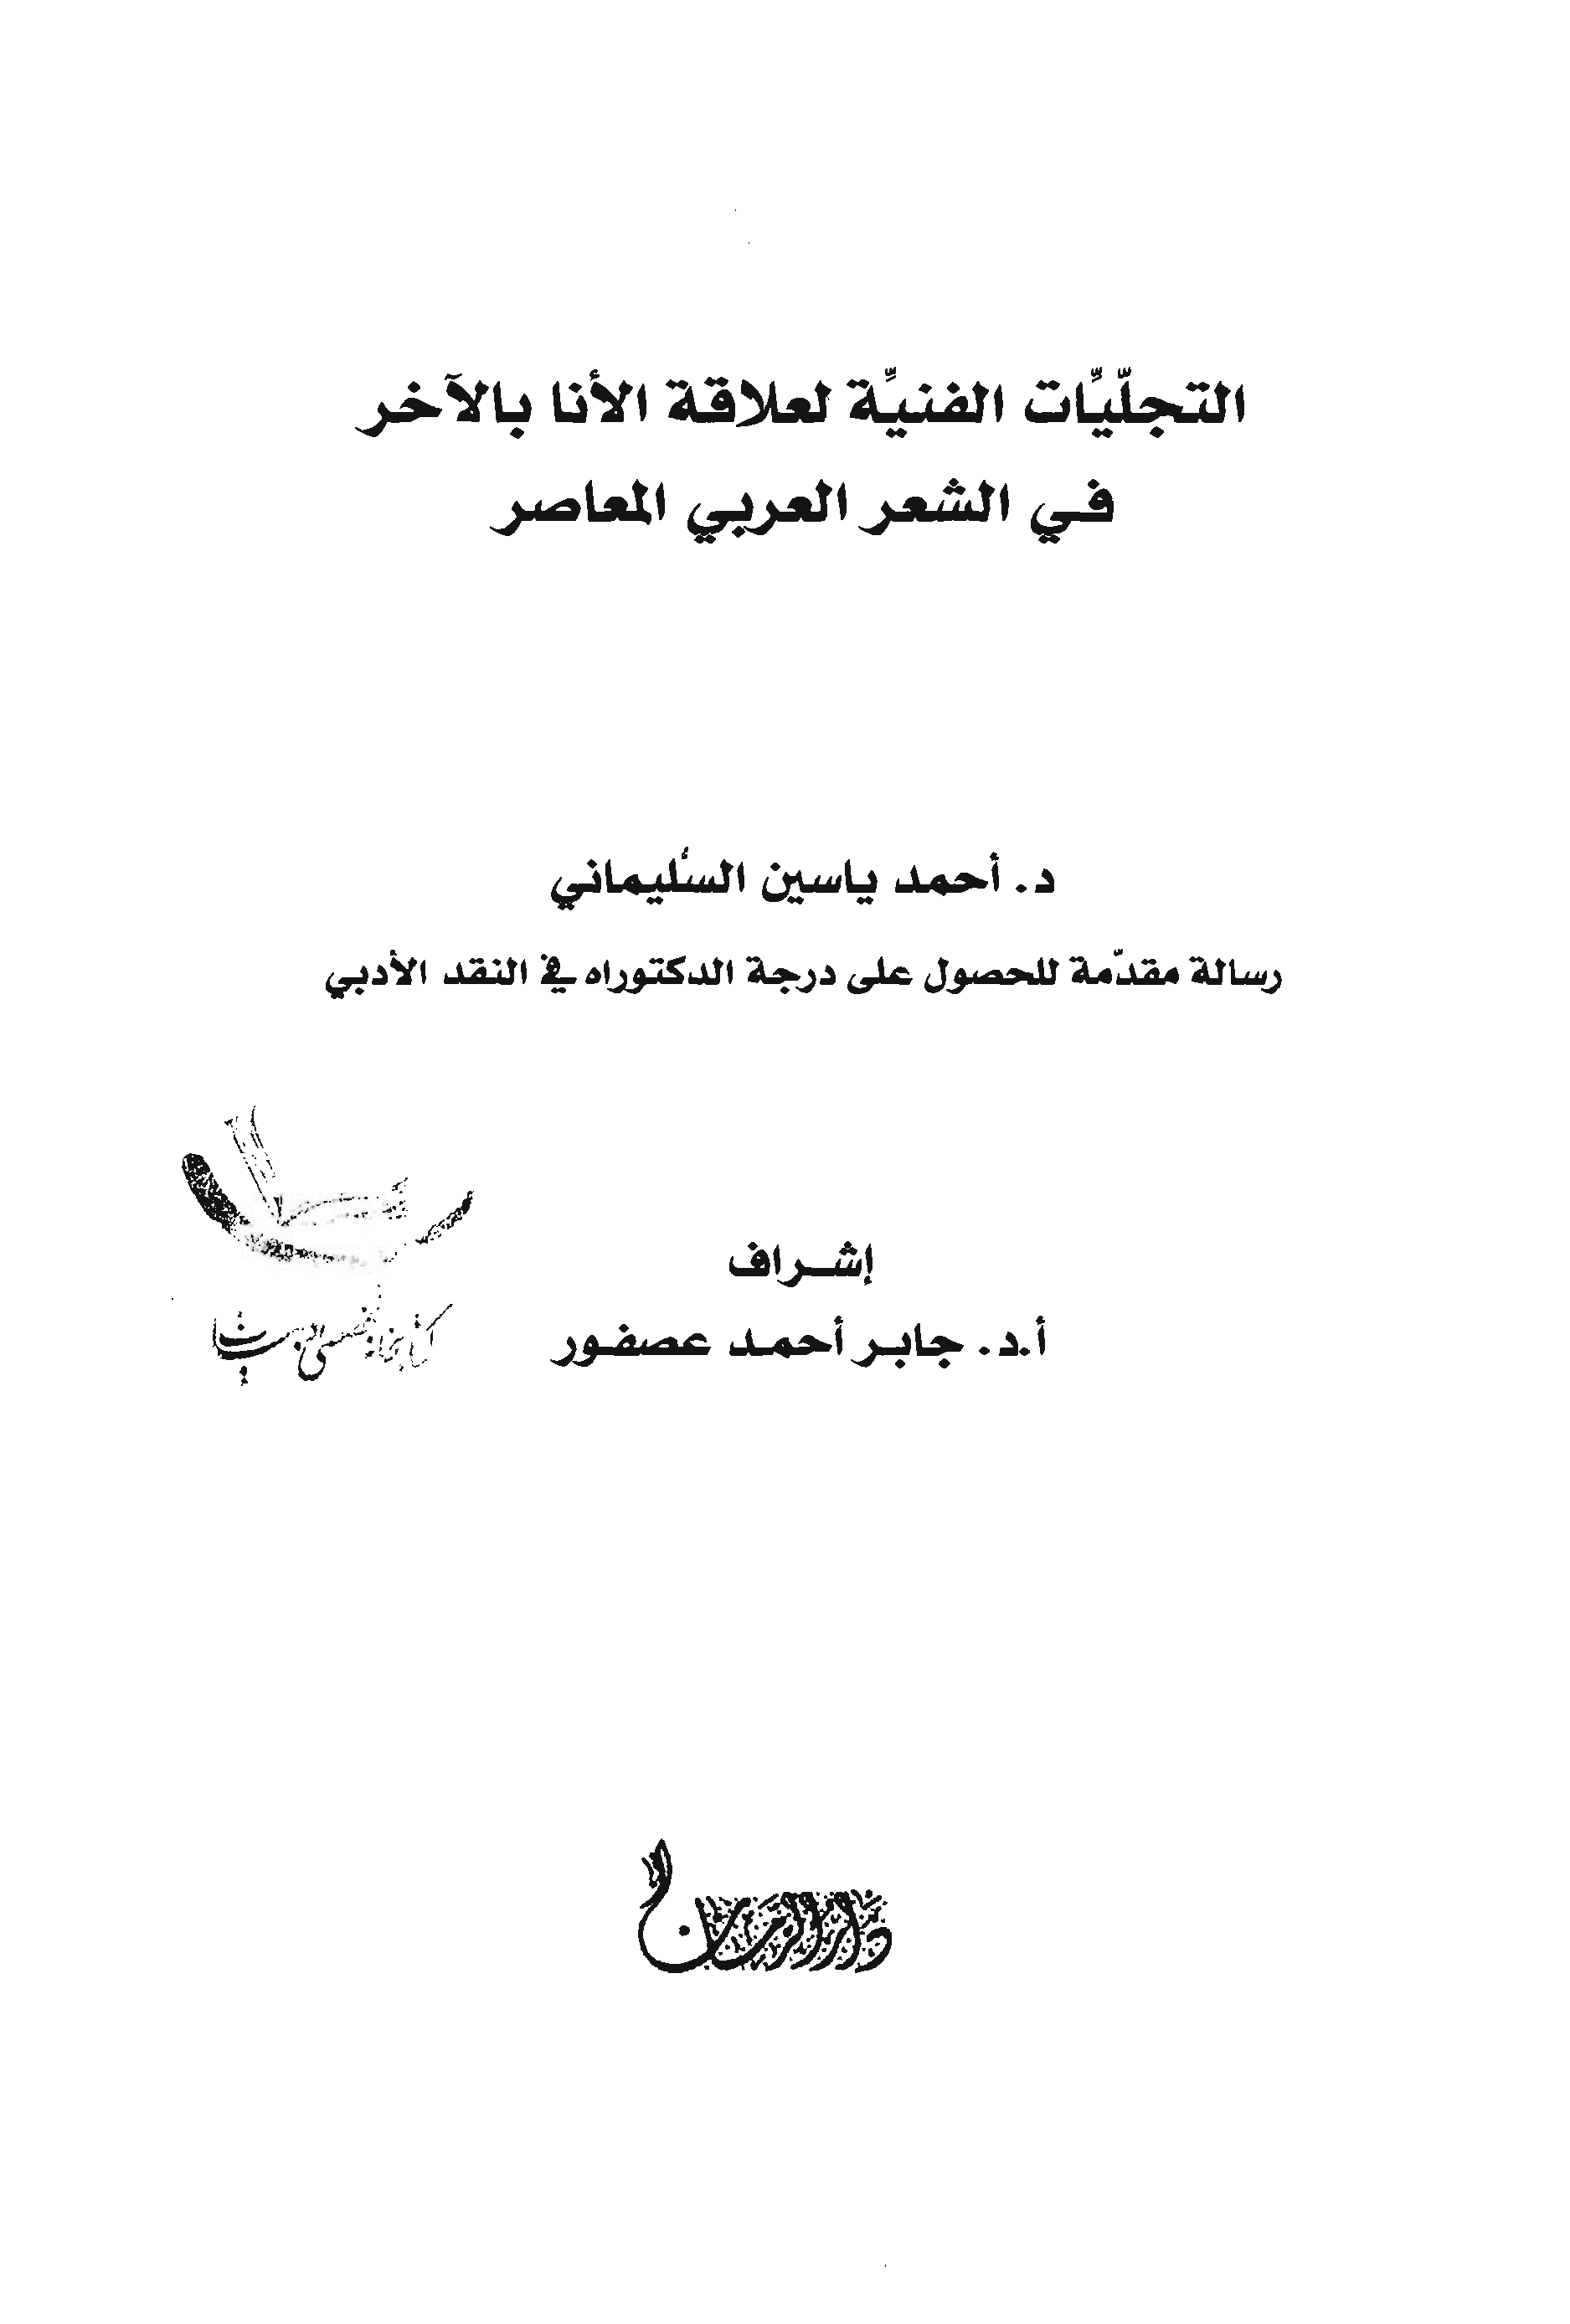 التجلّيِّات الفنيِّة لعلاقة الأنا بالآخر
في الشعر العربي المعاصر
د. أحمد ياسين السُليماني
رسالة مقدّمة للحصول على درجة الدكتوراه في النقد الأدبي
إشراف
أ.د. جابر أحمد عصفور
كتابخانه تخصصى ادبيات
دار الزمان